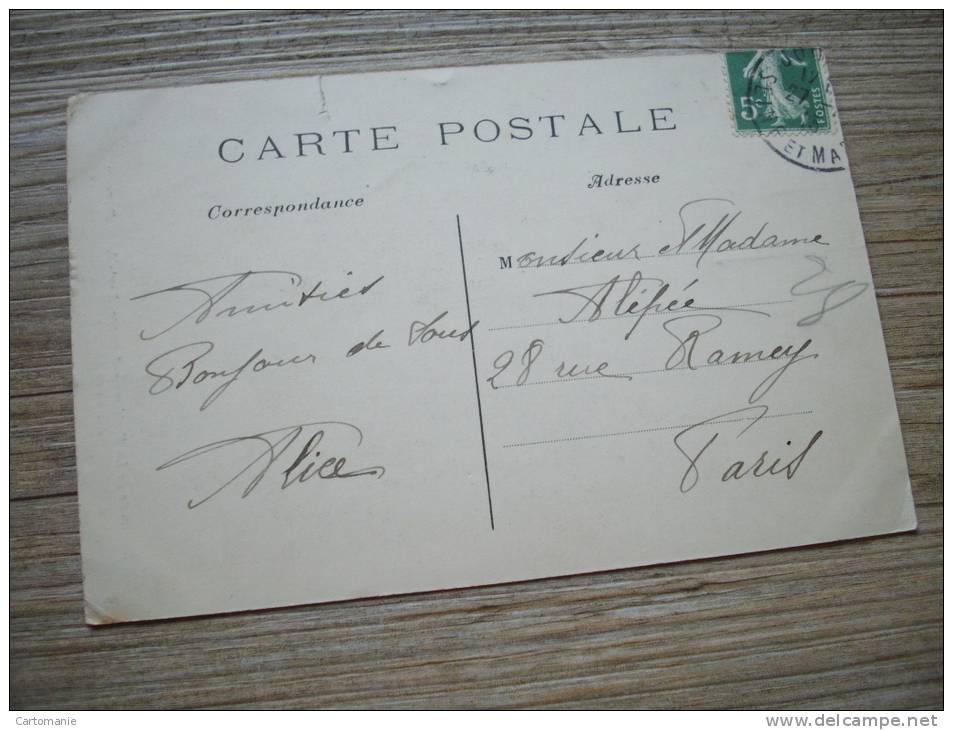 CARTE POSTALE
Correspondance
Adresse
5c
POSTES
ET MA
Amitiés
Bonjour de tous
Alice
Monsieur et Madame
28 rue Ramey
Paris
28
Cartomanie
www.delcampe.net